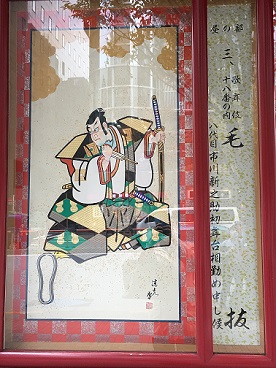 昼の部
三、歌舞伎十八番の内
毛抜
八代目市川新之助初舞台相勤め申し候
清光画